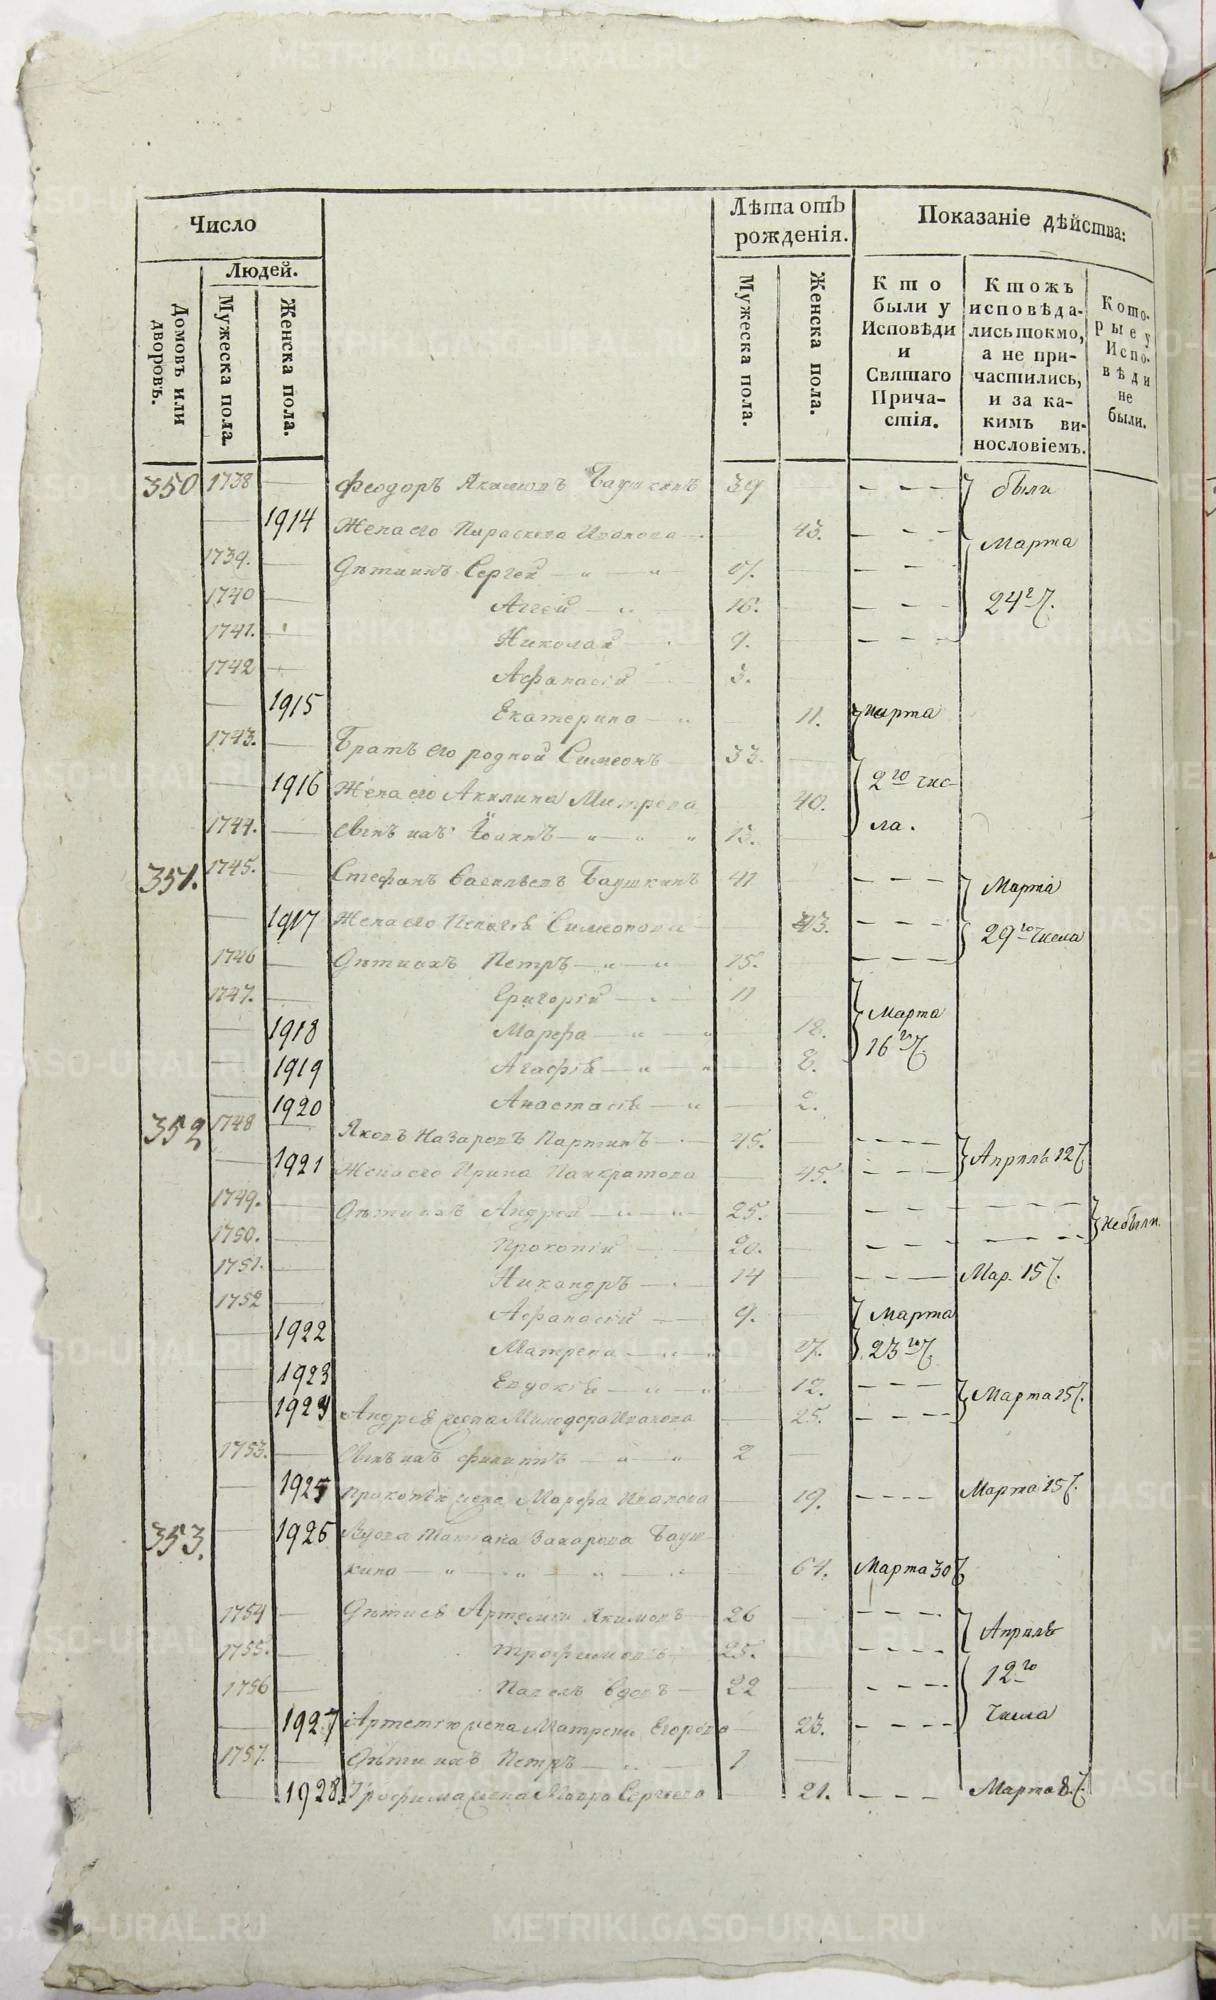 Число
Людей.
Домовъ или дворовъ.
Мужеска пола.
Женска пола.
Лѣта отъ рожденія.
Мужеска пола.
Женска пола.
Показаніе дѣйства:
Кто были у Исповѣди и Святаго Причастія.
Ктожъ исповѣдались токмо, а не причастились, и за какимъ винословіемъ.
Которые у Исповѣди не были.
350 1738 Феодоръ Якимовъ Баушкинъ 39 были
1914 Жена его Параскева Иванова 43. Марта
1739. Дѣти ихъ Сергей 17.
1740 Аггей 16. 24го Ч.
1741. Николай 9.
1742 Афанасій 3.
1915 Екатерина 11. Марта
1743. Братъ его родной Симеонъ 33.
1916 Жена его Акилина Митрева 40. 2го чис
1744. Сынъ ихъ Іоаннъ 13. ла.
351. 1745. Стефанъ Васильевъ Баушкинъ 41 Марта
1917 Жена его Пелагія Симеонова 43. 29го Числа
1746 Дѣти ихъ Петръ 15.
1747. Григорій 11
1918 Марфа 18. Марта
1919 Агафія 8. 16го Ч
1920 Анастасія 2.
352 1748 Яковъ Назаровъ Партинъ 45.
1921 Жена его Ирина Панкратова 45. Апрѣля 12 Ч
1749. Дѣти ихъ Андрей 25. не были.
1750. Прокопій 20.
1751. Никандръ 14 Мар. 15 Ч.
1752 Афанасій 9. Марта
1922 Матрена 17. 23го Ч.
1923 Евдокія 12. Марта 15 Ч.
1924 Андрея жена Минодора Иванова 25.
1753. Сынъ ихъ Филиппъ 2
1925 Прокопія жена Марфа Иванова 19. Марта 15 Ч.
353. 1926 Вдова Татіана Захарова Бауш
кина 61. Марта 30 Ч
1754 Дѣти ея Артемій Якимовъ 26 Апрѣля
1755. Трофимовъ 25. 12го
1756 Павелъ 22 Числа
1927 Артемія жена Матрена Егорова 23.
1757. Дѣти ихъ Петръ 1
1928 Трофима жена Мавра Сергеева 21. Марта 8 Ч.
METRIKI.GASO-URAL.RU